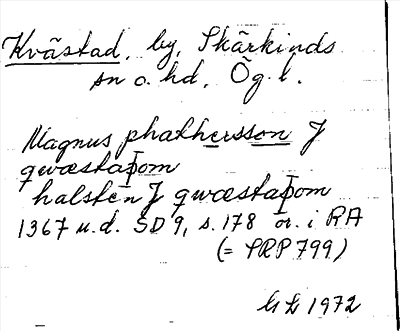 Kvästad, by, Skärkinds
sn o. hd, Ög. l.
Magnus phathersson J
qwæstaþom
halsten J qwæstaþom
1367 u.d. SD 9, s. 178 or. i RA
(= SRP 799)
1972